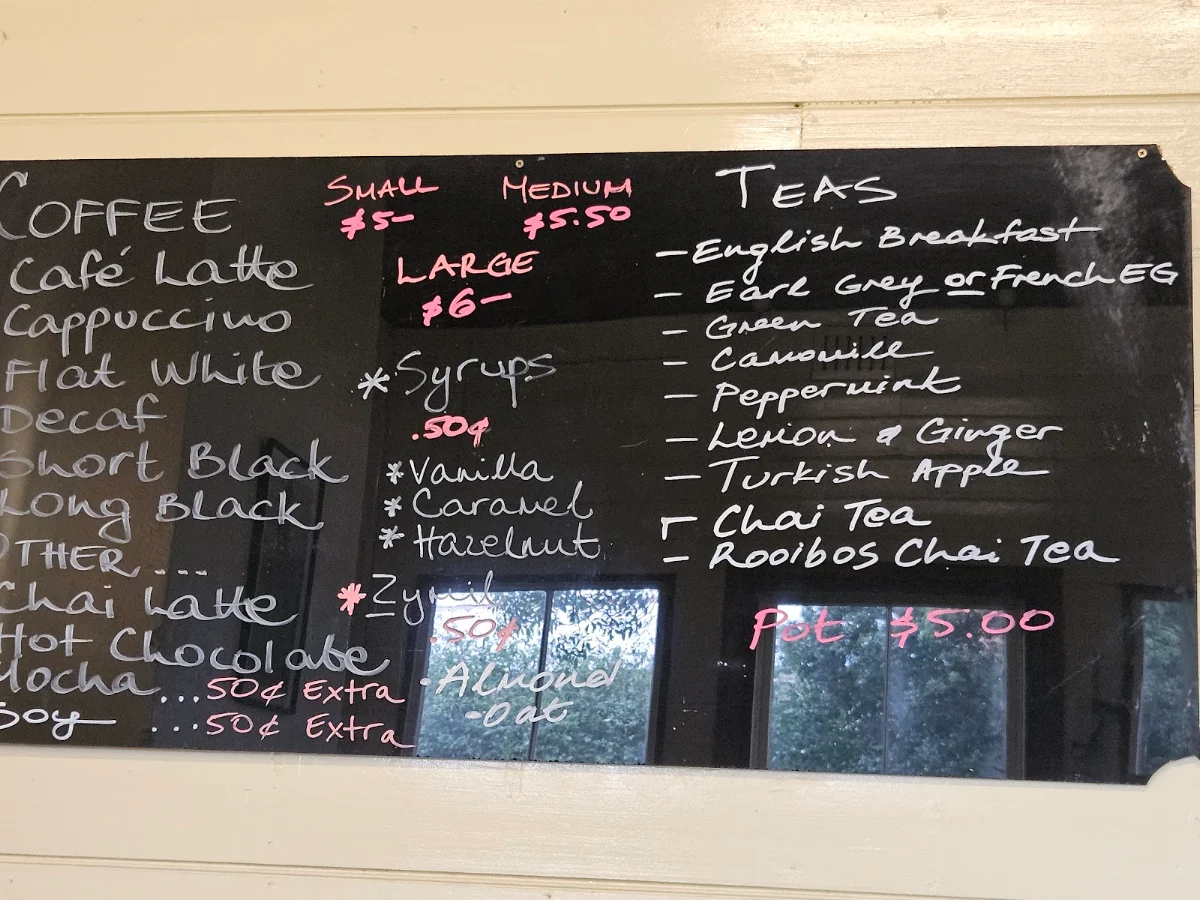 COFFEE
Café Latte
Cappuccino
Flat White
Decaf
Short Black
Long Black
OTHER ...
Chai Latte
Hot Chocolate
Mocha ...50¢ Extra
Soy ...50¢ Extra
SMALL MEDIUM
$5- $5.50
LARGE
$6-
* Syrups
.50¢
* Vanilla
* Caramel
* Hazelnut
* Zymil
.50¢
- Almond
- Oat
TEAS
- English Breakfast
- Earl Grey or French EG
- Green Tea
- Camomile
- Peppermint
- Lemon & Ginger
- Turkish Apple
- Chai Tea
- Rooibos Chai Tea
Pot $5.00